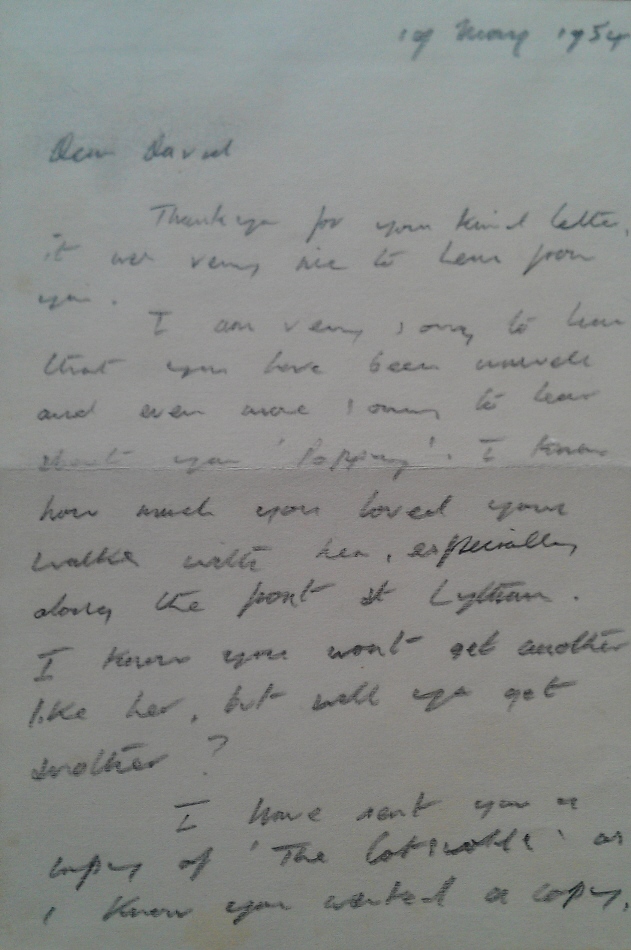 19 May 1954
Dear David
Thank you for your kind letter,
it was very nice to hear from
you.
I am very sorry to hear
that you have been unwell
and even more sorry to hear
about you 'Poppy'. I know
how much you loved your
walks with her, especially
along the front at Lytham.
I know you wont get another
like her, but will you get
another ?
I have sent you a
copy of 'The Cotswolds' as
I know you wanted a copy,